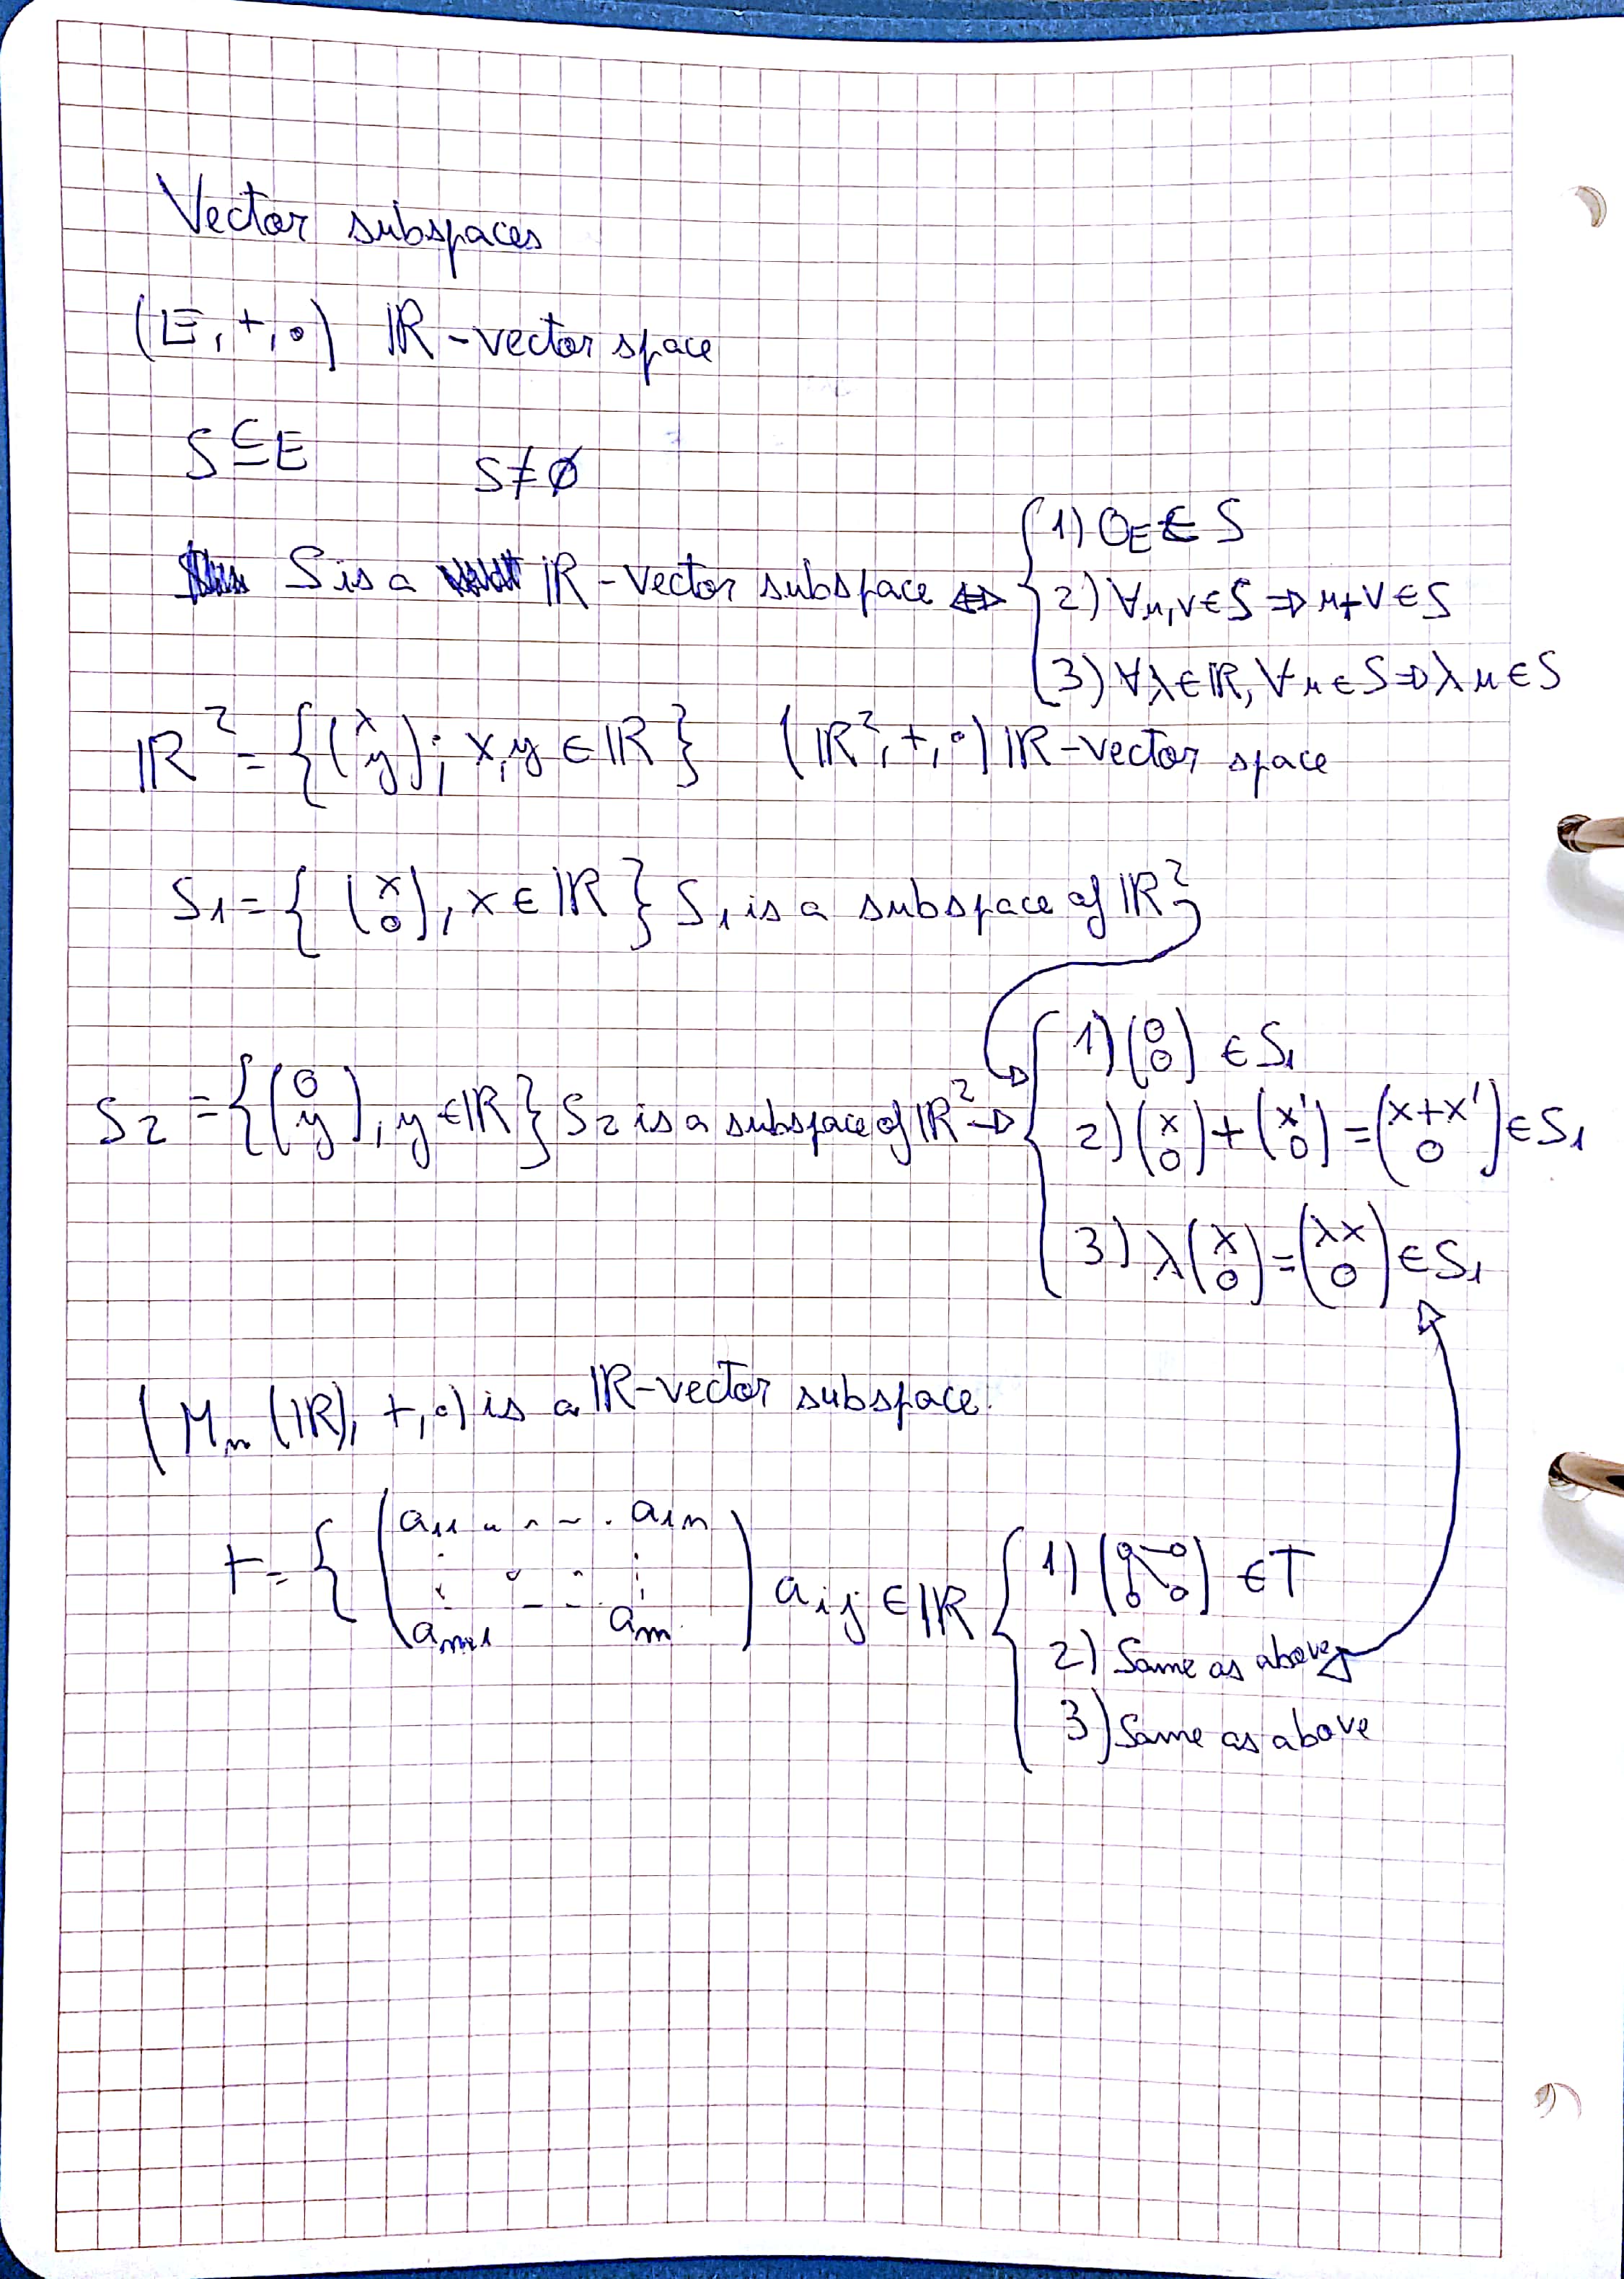 Vector subspaces
(E, +, ∘) ℝ-vector space
S ⊆ E S ≠ ∅
S is a ℝ-vector subspace ⇔ { 1) 0_E ∈ S
2) ∀u,v ∈ S ⇒ u+v ∈ S
3) ∀λ ∈ ℝ, ∀u ∈ S ⇒ λu ∈ S
ℝ² = { (x y) ; x,y ∈ ℝ } (ℝ², +, ∘) ℝ-vector space
S₁ = { (x 0), x ∈ ℝ } S₁ is a subspace of ℝ²
S₂ = { (0 y), y ∈ ℝ } S₂ is a subspace of ℝ² → { 1) (0 0) ∈ S₁
2) (x 0) + (x' 0) = (x+x' 0) ∈ S₁
3) λ(x 0) = (λx 0) ∈ S₁
(M_n(ℝ), +, ∘) is a ℝ-vector subspace.
T = { (a₁₁ .... a₁n
a_n1 ... a_nn) a_ij ∈ ℝ { 1) (0 0 0 0) ∈ T
2) Same as above
3) Same as above